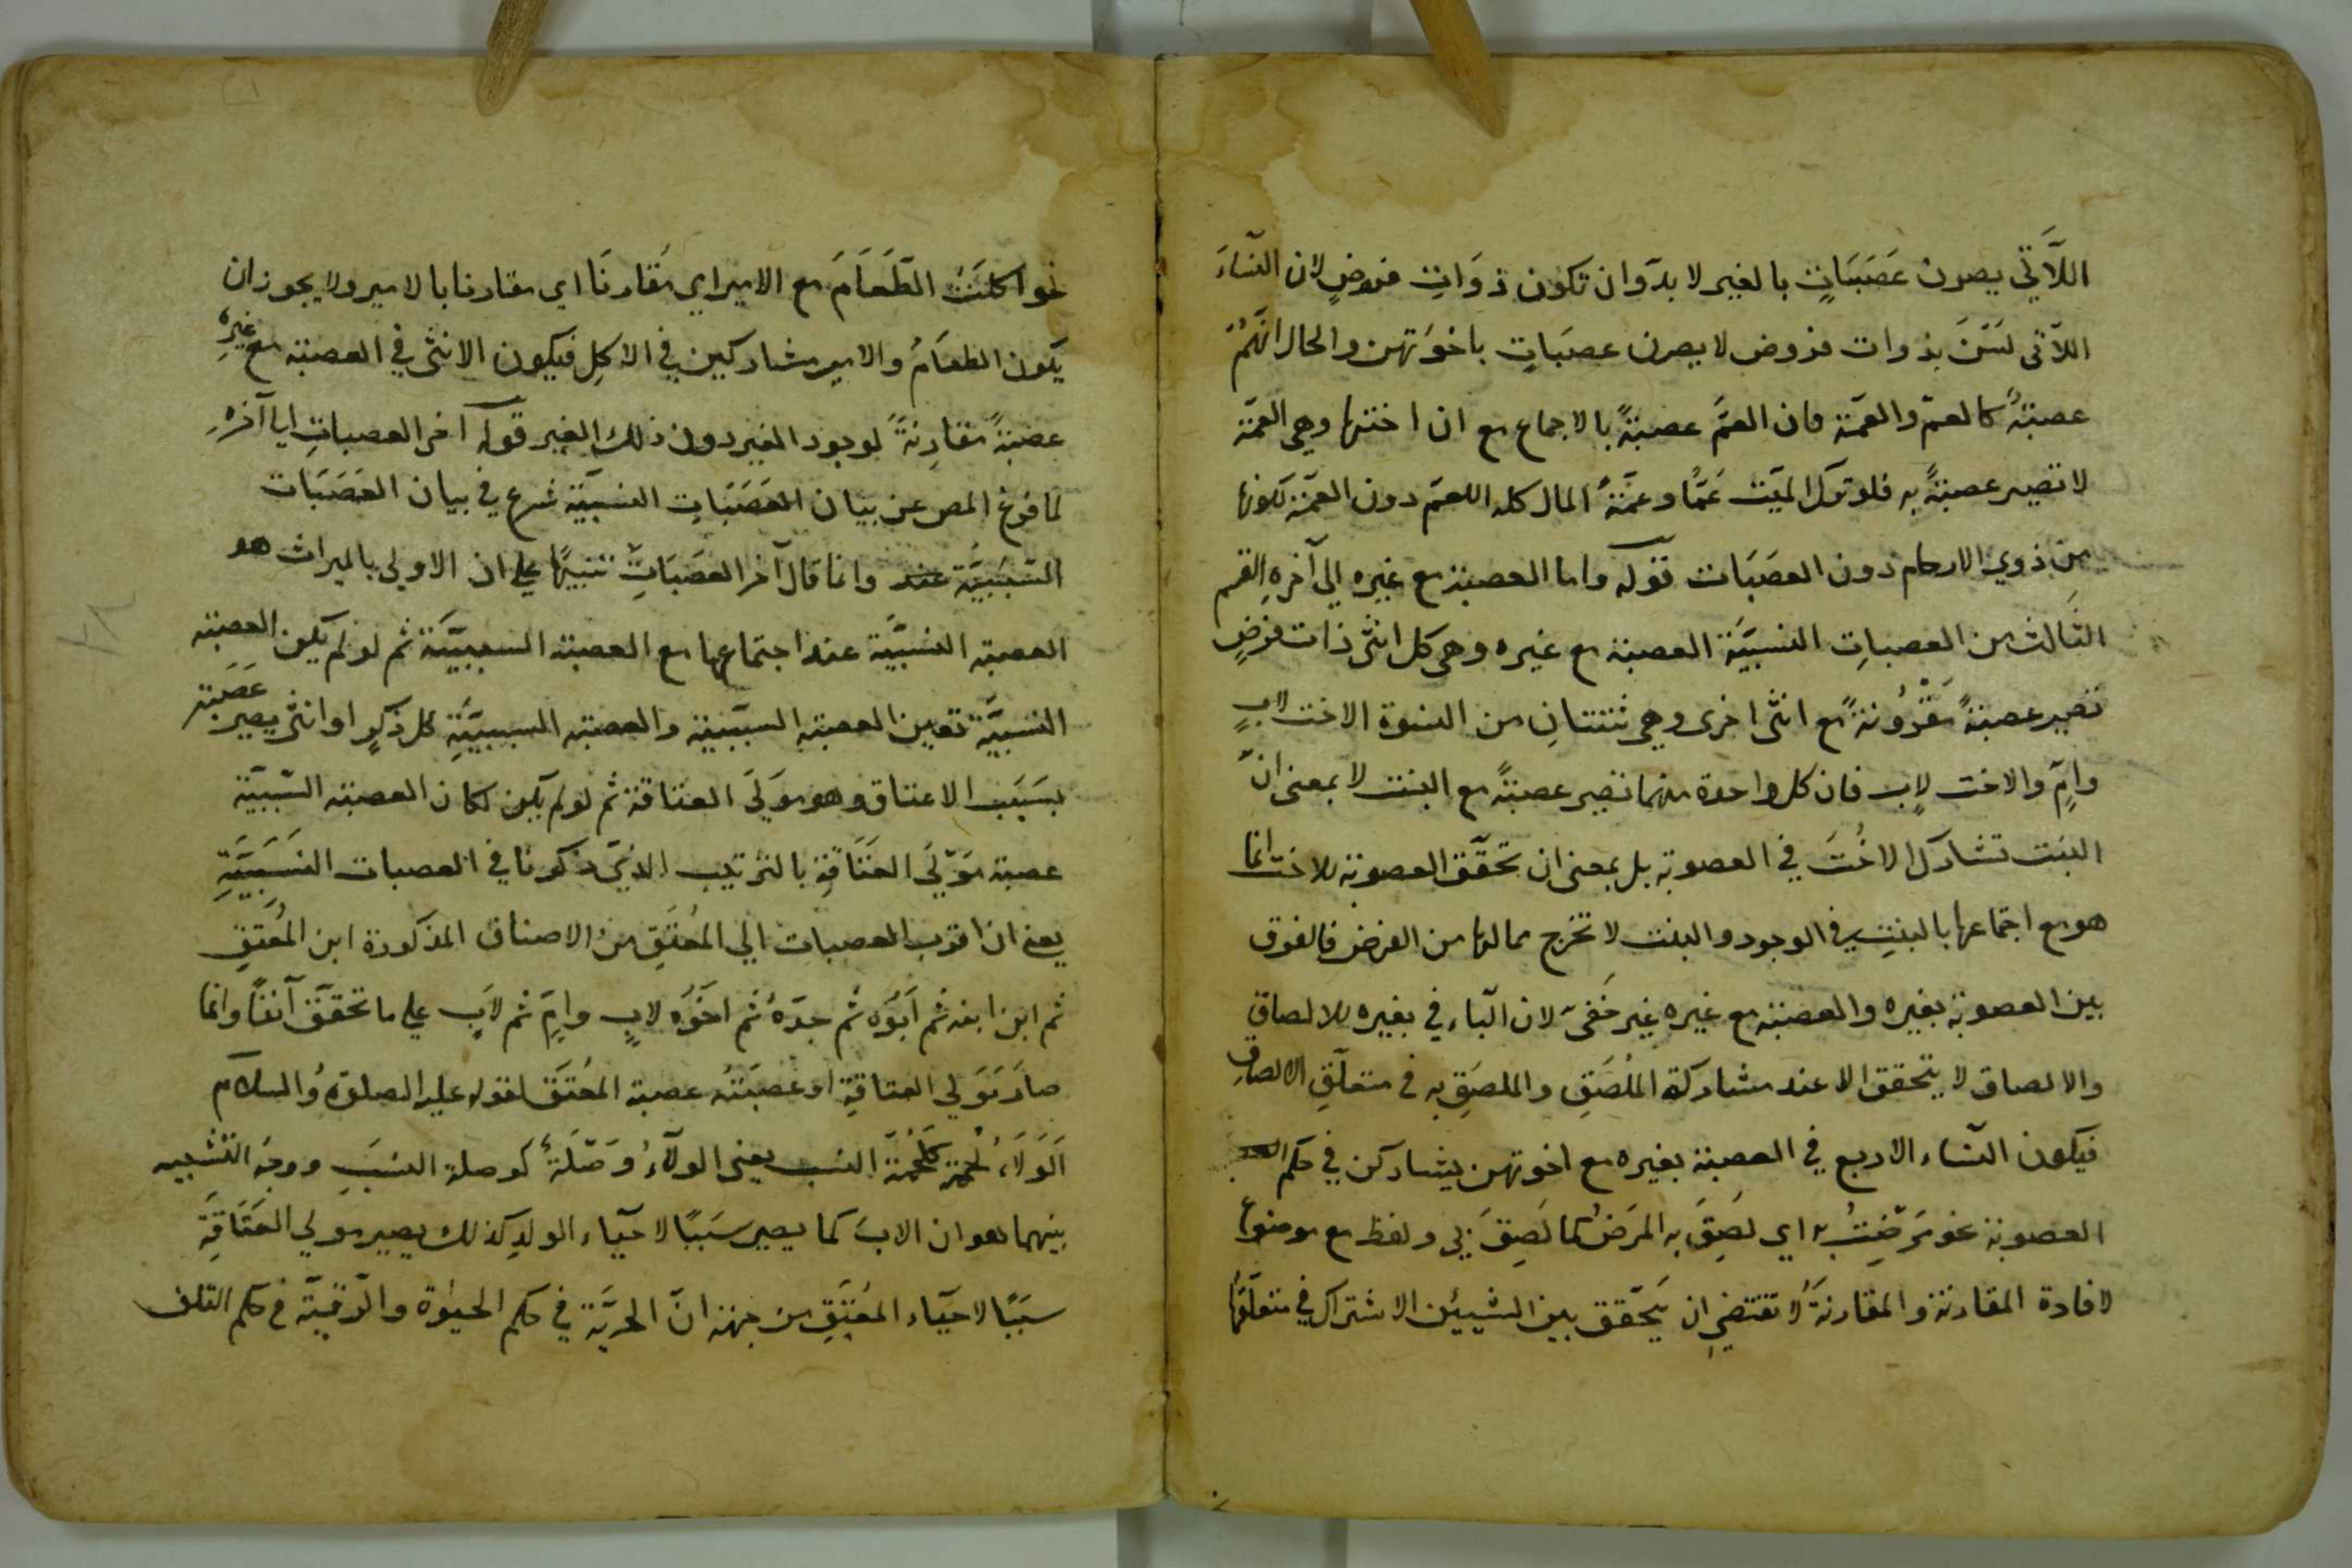 اللَّاتي يصرن عَصَبَاتٍ بالغير لا بدّ وان تكون ذوَاتِ فروضٍ لان النّساءَ
اللاّتى لَسْنَ بذوات فروض لا يصرن عصبَاتٍ باخوَتهن والحال انّهُمْ
عصبةٌ كالعمّ والعمّة فان العمَّ عصبةٌ بالاجماع مع ان اختها وهي العمّة
لا تصير عصبةً به فلو ترك الميّت عَمًّا وعَمَّةً المال كله للعمّ دون العمّة لكونها
مِن ذوي الارحام دون العصَبَات قوله واما العصبة مع غيره الى آخرهِ القسم
الثالث من العصباتِ النسبيَّة العصبة مع غيره وهى كل انثى ذات فرضٍ
تصير عصبةً مَقْرُونةً مع انثى اخرى وهى ثنتتانِ من النسوة الاخت لابٍ
وامٍّ والاخت لاب فان كل واحدة منهما تصير عصبةً مع البنت لا بمعنى انّ
البنت تشارك الاختَ في العصوبة بل بمعنى ان تحقّق العصوبة للاخت انما
هو مع اجتماعها بالبنتِ في الوجود والبنت لا تخرج مما لها من الفرض فالفرق
بين العصوبة بغيره والعصبة مع غيره غير خَفىّ لان الباء في بغيره للالصاق
والالصاق لا يتحقق الا عند مشاركة المُلصَقِ والملصَقِ به في متعلّقِ الالصاقِ
فيكون النّساء الاربع في العصبة بغيره مع اخوتهن يشاركن في حكم
العصوبة نحو مَرضتُ به اي لصِقَ به المرَضُ كما لَصِقَ بي ولفظ مع موضوع
لافادة المقارنة والمقارنةُ لا تقتضي ان يَحقّق بين الشيئين الاشتراك في متعلّقها
نحو اكلتُ الطّعَامَ مع الامير اي مُقارنًا اي مقارنا بالامير ولا يجوز ان
يكون الطعَامُ والامير مشاركين في الاكلِ فيكون الانثى في العصبة مع غيرِه
عصبةً مقارِنةً لوجود الغير دون ذلك الغير قوله آخر العصباتِ الى آخرهِ
لما فرغ المص عن بيان العَصَبَاتِ النسبيّة شرع في بيان العَصَبَات
السّبَبيَّة عند وانما قال آخر العصَبَاتِ تنبيهًا على ان الاولى بالميراث هو
العصبة النسبيَّة عند اجتماعها مع العصبة السببيَّة ثم لو لم يكن العصبة
النسبيَّة تعين العصبة السبَبية والعصبة السببيَّةِ كل ذكرٍ او انثى يصير عَصَبة
بسَبَب الاعتاق وهو مولَى العتاقة ثم لو لم يكن لكان العصبة السّببيّة
عصبة مَوْلَى العَتَاقةِ بالترتيب الذيّ ذكرنا في العصبات النسَبيَّةِ
يعنى ان اقرب العصبات الى المعُتَقِ من الاصناف المذكورة ابن المُعتِقِ
ثم ابن ابنه ثم اَبُوه ثم جدّهُ ثم اخُوه لابٍ وامٍّ ثم لابٍ على ما تحقّقَ آنفًا وانما
صار مَولى العتاقةِ او عصبَتهُ عصبة المعُتَق لقوله عليه الصلوةُ والسلام
اَلوَلاَءُ لُحمَة كلُحْمَة النسب يعني الولآءُ وُصْلَةٌ كوصلة النسَبِ ووجهُ التشبيه
بينهما هو ان الابَ كما يصير سَبَبًا لاحيَاء الولدِ كذلك يصير مولى العَتَاقةِ
سببًا لاحيَاء المعُتَقِ من جهة انّ الحريَّة في حكم الحيوٰة والرّقيّة في حكم التلف